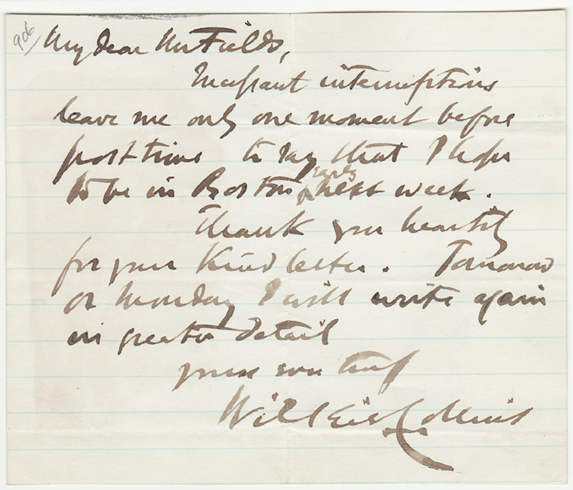 906
My dear Mr Fields,
Incessant interruptions
leave me only one moment before
post time to say that I hope
to be in Boston early next week.
Thank you heartily
for your kind letter. Tomorrow
or Monday I will write again
in greater detail
yours ever truly
Wilkie Collins